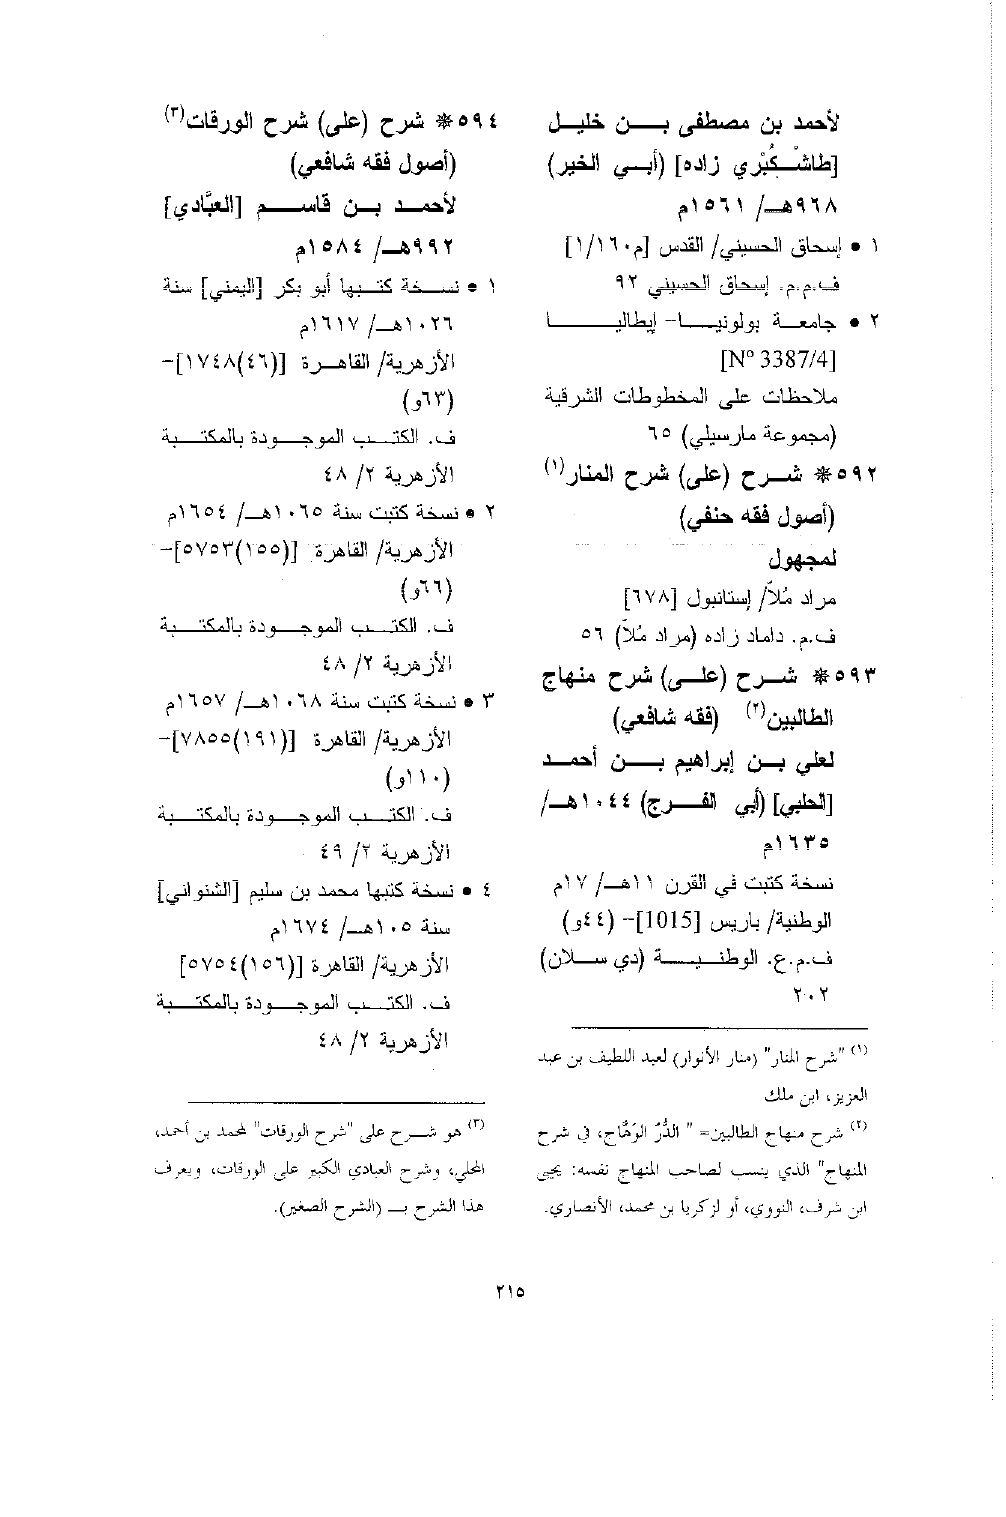 لأحمد بن مصطفى بن خليل
[طاشْكُبْري زاده] (أبي الخير)
٩٦٨هـ/ ١٥٦١م
١ • إسحاق الحسيني/ القدس [م١/١٦٠]
ف.م.م. إسحاق الحسيني ٩٢
٢ • جامعة بولونيا- إيطاليا
[N° 3387/4]
ملاحظات على المخطوطات الشرقية
(مجموعة مارسيلي) ٦٥
٥٩٢* شرح (على) شرح المنار(١)
(أصول فقه حنفي)
لمجهول
مراد مُلاّ/ إستانبول [٦٧٨]
ف.م. داماد زاده (مراد مُلاّ) ٥٦
٥٩٣* شرح (على) شرح منهاج
الطالبين(٢) (فقه شافعي)
لعلي بن إبراهيم بن أحمد
[الحلبي] (أبي الفرج) ١٠٤٤هـ/
١٦٣٥م
نسخة كتبت في القرن ١١هـ/ ١٧م
الوطنية/ باريس [1015]- (٤٤و)
ف.م.ع. الوطنية (دي سلان)
٢٠٢
(١) "شرح المنار" (منار الأنوار) لعبد اللطيف بن عبد
العزيز، ابن ملك
(٢) شرح منهاج الطالبين= " الدُّرّ الوَهَّاج، في شرح
المنهاج" الذي ينسب لصاحب المنهاج نفسه: يحيى
ابن شرف، النووي، أو لزكريا بن محمد، الأنصاري.
٥٩٤* شرح (على) شرح الورقات(٣)
(أصول فقه شافعي)
لأحمد بن قاسم [العبَّادي]
٩٩٢هـ/ ١٥٨٤م
١ • نسخة كتبها أبو بكر [اليمني] سنة
١٠٢٦هـ/ ١٦١٧م
الأزهرية/ القاهرة [(٤٦)١٧٤٨]-
(٦٣و)
ف. الكتب الموجودة بالمكتبة
الأزهرية ٢/ ٤٨
٢ • نسخة كتبت سنة ١٠٦٥هـ/ ١٦٥٤م
الأزهرية/ القاهرة [(١٥٥)٥٧٥٣]-
(٦٦و)
ف. الكتب الموجودة بالمكتبة
الأزهرية ٢/ ٤٨
٣ • نسخة كتبت سنة ١٠٦٨هـ/ ١٦٥٧م
الأزهرية/ القاهرة [(١٩١)٧٨٥٥]-
(١١٠و)
ف. الكتب الموجودة بالمكتبة
الأزهرية ٢/ ٤٩
٤ • نسخة كتبها محمد بن سليم [الشنواني]
سنة ١٠٥هـ/ ١٦٧٤م
الأزهرية/ القاهرة [(١٥٦)٥٧٥٤]
ف. الكتب الموجودة بالمكتبة
الأزهرية ٢/ ٤٨
(٣) هو شرح على "شرح الورقات" لمحمد بن أحمد،
المحلي، وشرح العبادي الكبير على الورقات، ويعرف
هذا الشرح بـ (الشرح الصغير).
٢١٥